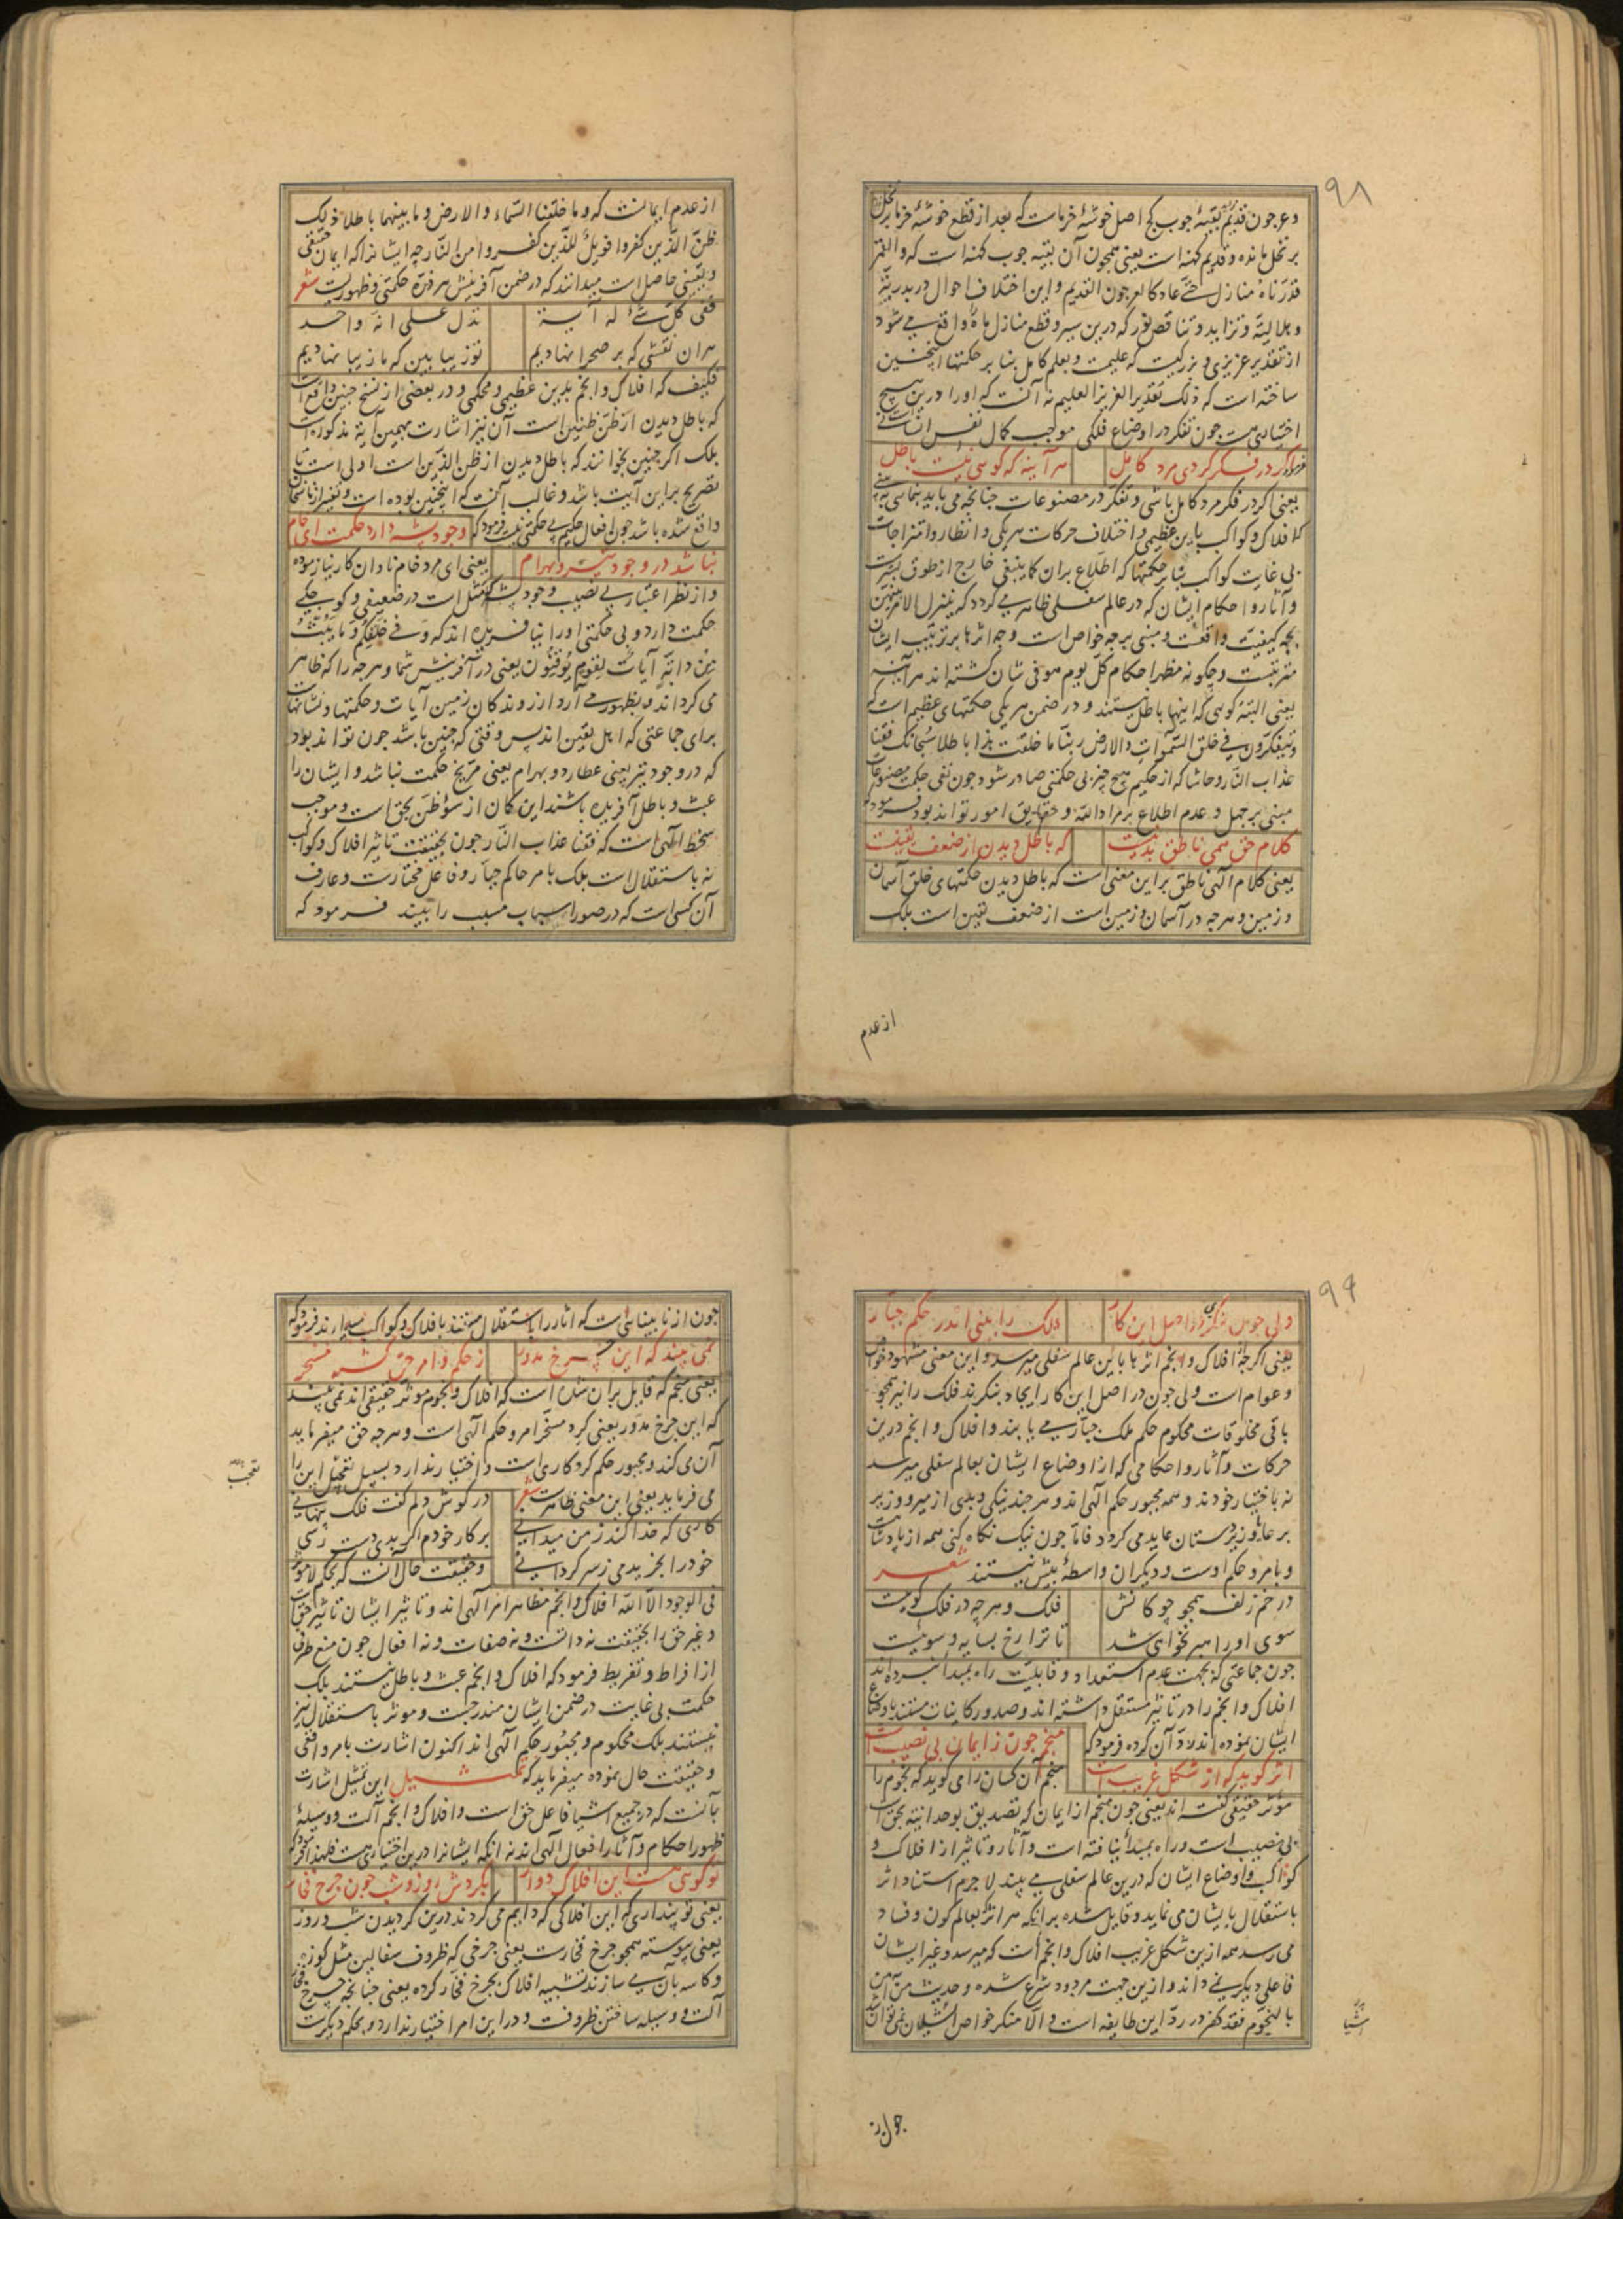 ۹۸
وعرجون قدیم بقیهٔ جوب کج اصل خوشهٔ خرماست که بعد از قطع خوشهٔ خرما بر نخل
بر نخل مانده و قدیم کهنه است یعنی همجون آن بقیه جوب کهنه است که والقمر
قدرناه منازل حتی عاد کالعرجون القدیم و این اختلاف احوال در بدریّة
و هلالیّة و تزاید و تناقص نور که درین سیر و قطع منازل ماه را واقع می شود
از تقدیر عزیزی و بزرکیست که علیمست و بعلم کامل بنا بر حکمتها اینجنین
ساخته است که ذلک تقدیر العزیز العلیم نه آنست که او را درین هیج
اختیاری هست جون تفکر در اوضاع فلکی موجب کمال نفس انسانیست
فرمود
اکر در فکر کردی مرد کامل
هر آینه که کویی نیست باطل
یعنی اکر در فکر مرد کامل باشی و تفکر در مصنوعات جنانجه می باید بنمایی
که افلاک و کواکب باین عظیمی و اختلاف حرکات هریکی و انظار و امتزاجات
بی غایت کواکب بنا بر حکمتها که اطلاع بران کما ینبغی خارج از طوق بشریت
و آثار و احکام ایشان که در عالم سفلی ظاهر می کردد که یتنزل الامر بینهن
بجه کیفیت واقعست و مبنی بر جه خواص است و جه اثرها بر ترتیب ایشان
مترتبست و چکونه مظهر احکام کل یوم هو فی شان کشته اند هر آینه
یعنی البته کویی که اینها باطل نیستند و در ضمن هریکی حکمتهای عظیم است که
ویتفکرون فی خلق السموات والارض ربنا ما خلقت هذا باطلا سبحانک فقنا
عذاب النار و حاشا که از حکیم هیج چیز بی حکمتی صادر شود جون نفی حکمت مصنوعات
مبنی بر جهل و عدم اطلاع بر مراد الله و حقایق امور تواند بود فرمود که
کلام حق همی ناطق بدینست
که باطل دیدن از ضعف یقینست
یعنی کلام الهی ناطق بر این معنی است که باطل دیدن حکمتهای خلق آسمان
و زمین و هرجه در آسمان و زمین است از ضعف یقین است بلک
از عدم
از عدم ایمانست که وما خلقنا السّماء والارض وما بینهما باطلا ذلک
ظنّ الّذین کفروا فویلٌ للّذین کفروا من النّار جه ایشانرا که ایمان حقیقی
و یقینی حاصل است میدانند که در ضمن آفرینش هر ذرّه حکمتی و ظهوریست شعر
ففی کل شیٔ له آیة
تدل علی انه واحد
هران نقشی که بر صحرا نهادیم
تو زیبا بین که ما زیبا نهادیم
فکیف که افلاک و انجم بدین عظیمی و محکمی و در بعضی از نسخ جنین واقع است
که باطل دیدن از ظنّ ظنین است آن نیز اشارت بهمین آیة مذکوره است
بلک اکر جنین بخوانند که باطل دیدن از ظن الذین است اولی است تا
تصریح براین آیت باشد و غالب آنست که اینجنین بوده است و تغییر از ناسخان
واقع شده باشد جون افعال حکیم بی حکمتی نیست فرمود که
وجود پشه دارد حکمت ای خام
نباشد در وجود تیر و بهرام
یعنی ای مرد خام نادان کار نیازموده
و از نظر اعتبار بی نصیب وجود پشه که مثل است در ضعیفی و کوجکی
حکمت دارد و بی حکمتی او را نیافریده اند که وَفی خلقکم وما یبثّ
من دابّة آیاتٌ لقوم یُوقنون یعنی در آفرینش شما و هرجه را که ظاهر
می کرداند و بظهور می آرد از روندکان زمین آیات و حکمتها و نشانهاست
برای جماعتی که اهل یقین اند پس وقتی که جنین باشد جون تواند بود
که در وجود تیر یعنی عطارد و بهرام یعنی مرّیخ حکمت نباشد و ایشان را
عبث و باطل آفریده باشند این کمان از سؤ ظنّ بحق است و موجب
سخط الهی است که فقنا عذاب النّار جون بحقیقت تاثیر افلاک و کواکب
نه باستقلال است بلک بامر حاکم جبّار و فاعل مختارست و عارف
آن کسی است که در صور اسباب مسبب را بیند فرمود که
۹۹
ولی جون بنکری در اصل این کار
فلک را بینی اندر حکم جبّار
یعنی اکرجه از افلاک و انجم اثرها باین عالم سفلی میرسد و این معنی مشهود خواص
و عوام است ولی جون در اصل این کار ایجاد بنکرند فلک را نیز همجو
باقی مخلوقات محکوم حکم ملک جبّار می یابند و افلاک و انجم درین
حرکات و آثار و احکامی که از اوضاع ایشان بعالم سفلی میرسد
نه باختیار خودند و همه مجبور حکم الهی اند و هرجند نیکی و بدی از میر و وزیر
بر عایا و زیردستان عاید می کردد فامّا جون نیک نکاه کنی همه از پادشاهست
و بامر و حکم اوست و دیکران واسطهٔ بیش نیستند شعر
در خم زلف همجو چوکانش
فلک و هرچه در فلک کویست
سوی او راهبر نخواهی شد
تا ترا رخ بسایه و سویست
جون جماعتی که بجهت عدم استعداد و قابلیّت راه بمبدا نبرده اند
افلاک و انجم را در تاثیر مستقل داشته اند و صدور کاینات مستند باوضاع
ایشان نموده اند ردّ آن کرده فرمود که
منجم جون ز ایمان بی نصیب است
اثر کوید که از شکل غریب است
منجم آن کسان را می کوید که نجوم را
مؤثر حقیقی کفته اند یعنی جون منجم از ایمان که تصدیق بوحدانیّه حق است
بی نصیب است و راه بمبدأ نیافته است و آثار و تاثیر از افلاک و
کواکب و اوضاع ایشان که درین عالم سفلی می بیند لاجرم استناد اثر
باستقلال بایشان می نماید و قایل شده برانکه هر اثر که بعالم کون و فساد
می رسد همه ازین شکل غریب افلاک و انجم است که میرسد و غیر ایشان
فاعلی دیکر نمی داند و ازین جهت مردود شرع شده و حدیث من آمن
بالنجوم فقد کفر در ردّ این طایفه است و الّا منکر خواص اشیا نمی توان شد
اشیا
جون از
جون از نابینائی است که آثار را باستقلال مستند بافلاک و کواکب میدارند فرمود که
نمی بیند که این چرخ مدوّر
ز حکم و امر حق کشته مسخر
یعنی منجم که قایل بران شده است که افلاک و نجوم موثر حقیقی اند نمی بیند
که این جرخ مدوّر یعنی کرد مسخّر امر و حکم الهی است و هرجه حق میفرماید
آن می کند و مجبور حکم کردکاری است و اختیار ندارد بسبیل این را
تعجب
می فرماید یعنی این معنی ظاهرست شعر
در کوش دلم کفت فلک پنهانی
کاری که خدا کند ز من میدانی
بر کار خودم اکر بدی دست رسی
خود را بخریدمی ز سرکردانی
و حقیقت حال آنست که بحکم لا موثر
فی الوجود الّا اللّه افلاک و انجم مظاهر امر الهی اند و تاثیر ایشان تاثیر حق است
و غیر حق را بحقیقت نه ذاتست و نه صفات و نه افعال جون منع طرفی
از افراط و تفریط فرمود که افلاک و انجم عبث و باطل نیستند بلک
حکمت بی غایت در ضمن ایشان مندرجست و موثر باستقلال نیز
نیستند بلک محکوم و مجبور حکم الهی اند اکنون اشارت بامر واقعی
و حقیقت حال نموده میفرماید که تمثیل این تمثیل اشارت
بآنست که در جمیع اشیا فاعل حق است و افلاک و انجم آلت و وسیلهٔ
ظهور احکام و آثار افعال الهی اند نه انکه ایشانرا درین اختیاری هست فلهذا فرمود که
تو کویی هست این افلاک دوار
بکردش روز و شب جون جرخ فخّار
یعنی تو پنداری که این افلاکی که دایم می کردند درین کردیدن شب و روز
یعنی پیوسته همجو جرخ فخّارست یعنی جرخی که ظروف سفالین مثل کوزه
و کاسه بآن می سازند تشبیه افلاک بجرخ فخّار کرده یعنی جنانجه جرخ فخار
آلت و وسیلهٔ ساختن ظروفست و در این امر اختیار ندارد و بحکم دیکرست